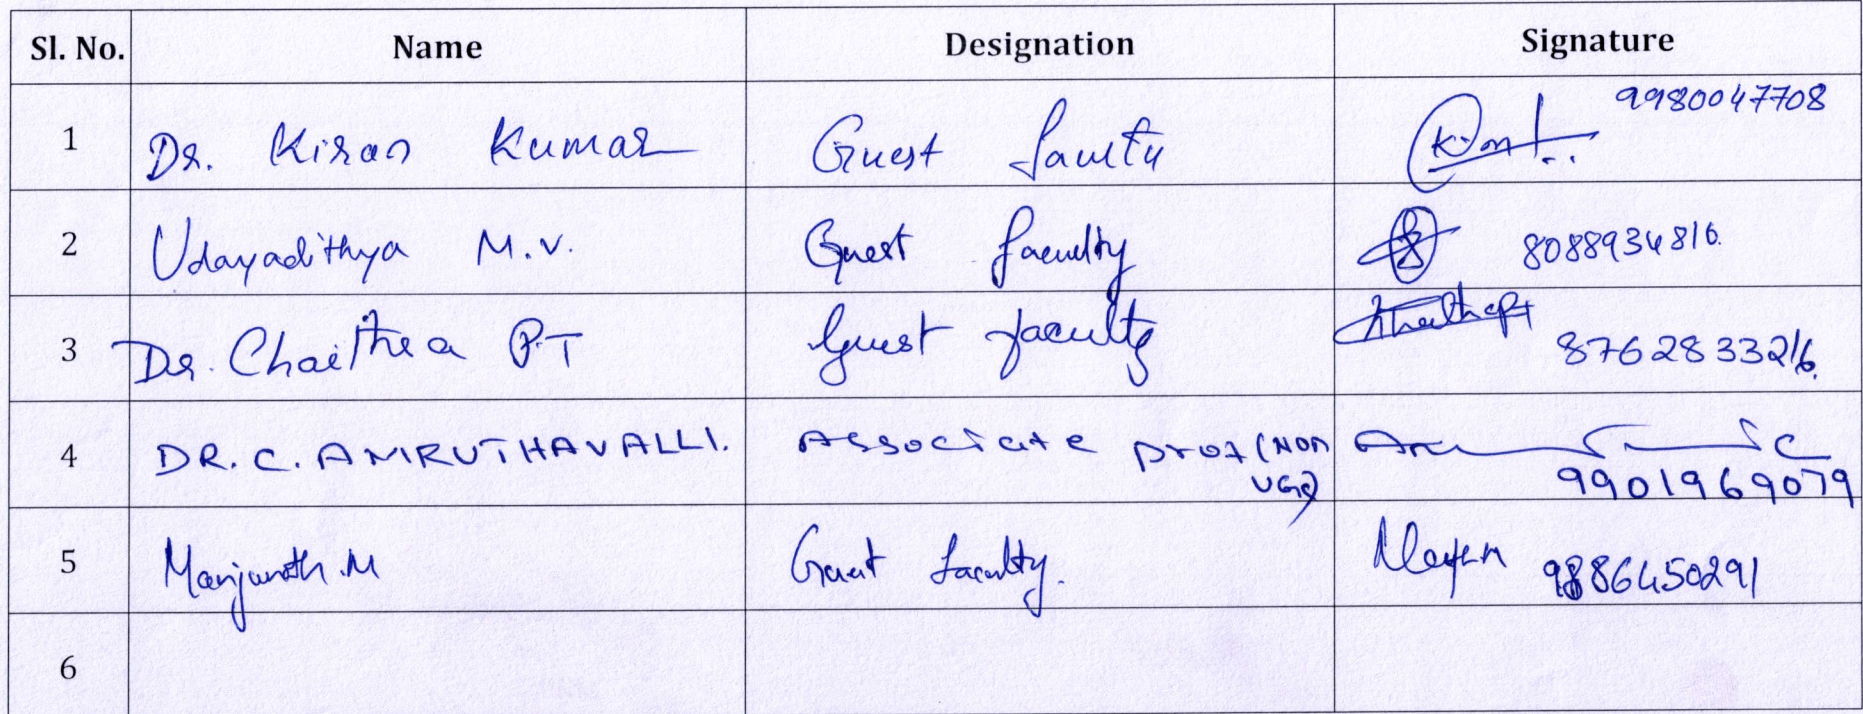 Sl. No. Name Designation Signature
1 Dr. Kiran Kumar Guest faculty 9980047708
2 Udayadithya M.V. Guest faculty 8088934816.
3 Dr. Chaithra P.T Guest faculty 8762833216.
4 DR. C. AMRUTHAVALLI. Associate prof (NON
UGC) 9901969079
5 Manjunath.M Guest faculty. 9886450291
6